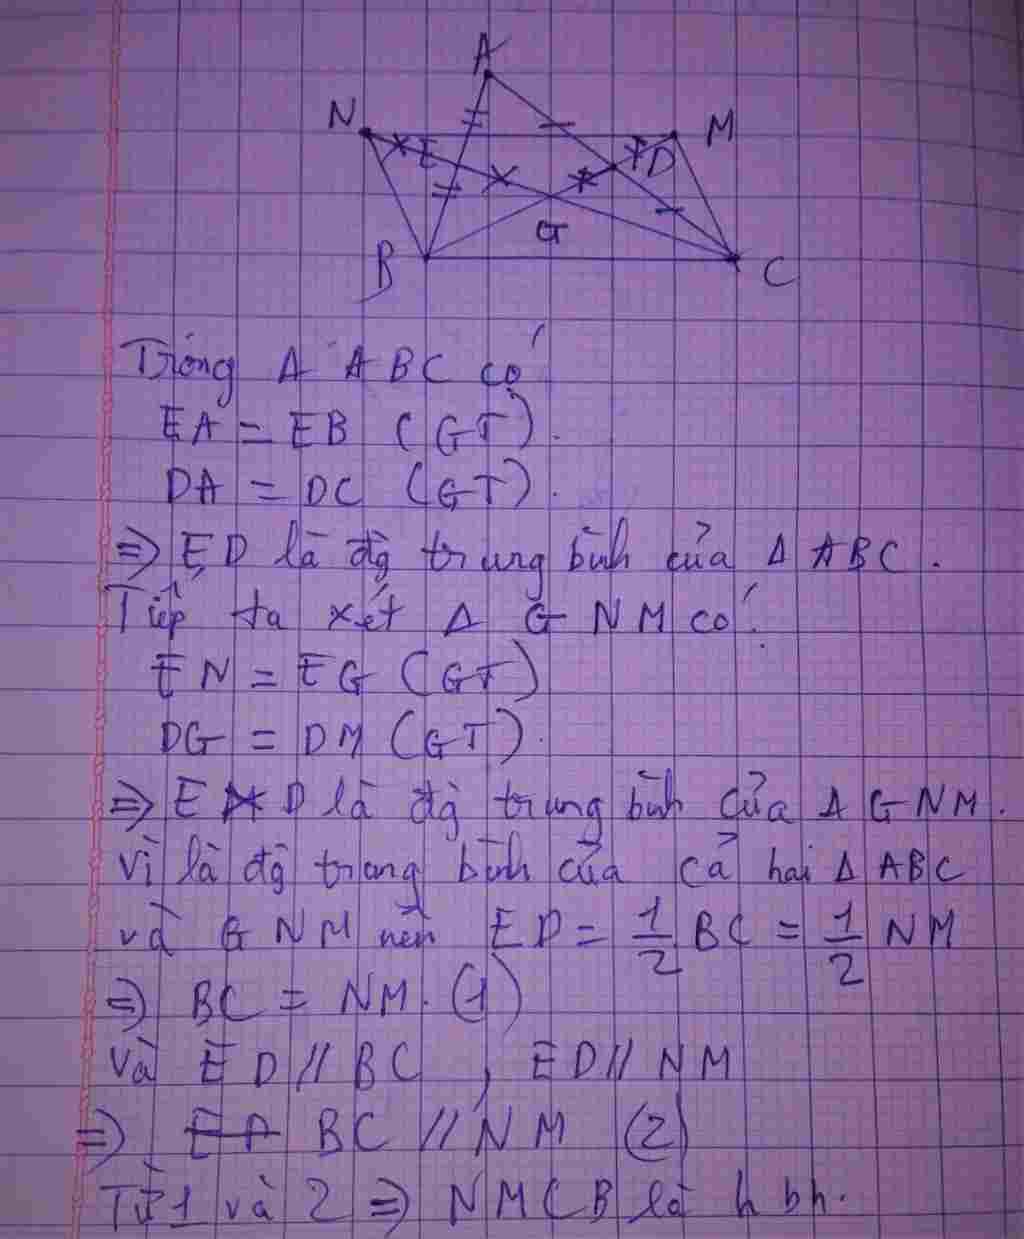 A
N
M
E
D
G
B
C
Trong Δ ABC có
EA = EB (GT).
DA = DC (GT).
=> ED là đg trung bình của Δ ABC.
Tiếp ta xét Δ GNM có:
EN = EG (GT)
DG = DM (GT).
=> E D là đg trung bình của Δ GNM.
Vì là đg trung bình của cả hai Δ ABC
và GNM nên ED = 1/2 BC = 1/2 NM
=> BC = NM. (1)
Và ED // BC , ED // NM
=> BC // NM (2)
Từ 1 và 2 => NMCB là hbh.